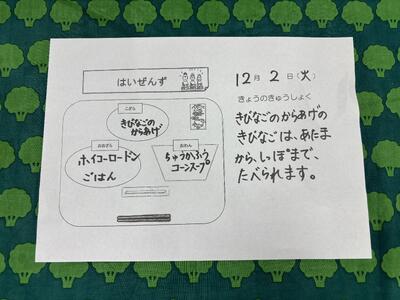 はいぜんず
こざら
きびなごの
からあげ
おおざら
ホイコーロードン
ごはん
おわん
ちゅうかふう
コーンスープ
12月2日(火)
きょうのきゅうしょく
きびなごのからあげの
きびなごは、あたま
から、しっぽまで、
たべられます。